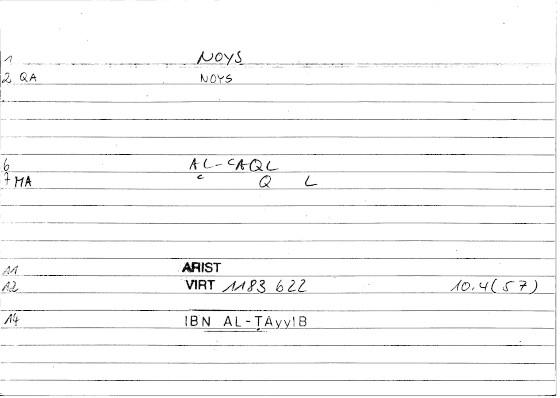 1 NOYS
2 QA NOYS
6 AL-ʿAQL
7 MA ʿ Q L
11 ARIST
12 VIRT 1183 622 10.4(57)
14 IBN AL-ṬAyyIB